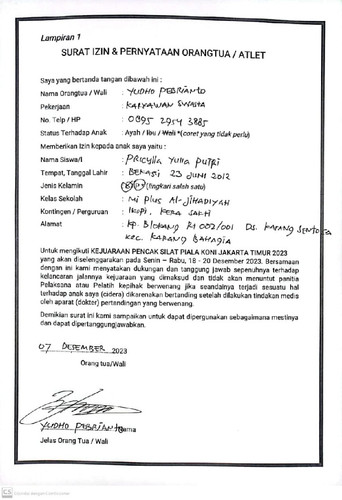 Lampiran 1
SURAT IZIN & PERNYATAAN ORANGTUA / ATLET
Saya yang bertanda tangan dibawah ini :
Nama Orangtua / Wali : YUDHO PEBRIANTO
Pekerjaan : KARYAWAN SWASTA
No. Telp / HP : 0895 2954 3885
Status Terhadap Anak : Ayah / Ibu / Wali *(coret yang tidak perlu)
Memberikan Izin kepada anak saya yaitu :
Nama Siswa/i : PRICYLLA YULIA PUTRI
Tempat, Tanggal Lahir : BEKASI 23 JUNI 2012
Jenis Kelamin : (lingkari salah satu)
Kelas Sekolah : MI PLUS AL-JIHADIYAH
Kontingen / Perguruan : IKSPI. KERA SAKTI
Alamat : KP. BLOKANG Rt 002/001 DS. KARANG SENTOSA
KEC. KARANG BAHAGIA
Untuk mengikuti KEJUARAAN PENCAK SILAT PIALA KONI JAKARTA TIMUR 2023
yang akan diselenggarakan pada Senin – Rabu, 18 - 20 Desember 2023. Bersamaan
dengan ini kami menyatakan dukungan dan tanggung jawab sepenuhnya terhadap
kelancaran jalannya kejuaraan yang dimaksud dan tidak akan menuntut panitia
Pelaksana atau Pelatih kepihak berwenang jika seandainya terjadi sesuatu hal
terhadap anak saya (cidera) dikarenakan bertanding setelah dilakukan tindakan medis
oleh aparat (dokter) pertandingan yang berwenang.
Demikian surat ini kami sampaikan untuk dapat dipergunakan sebagaimana mestinya
dan dapat dipertanggungjawabkan.
07 DESEMBER 2023
Orang tua/Wali
YUDHO PEBRIANTO Nama
Jelas Orang Tua / Wali
CS